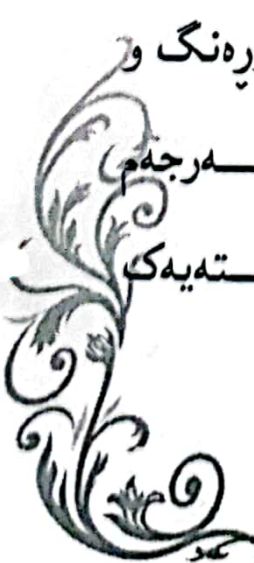 ورەنگ و
ـەرجەم
ـستەیەک